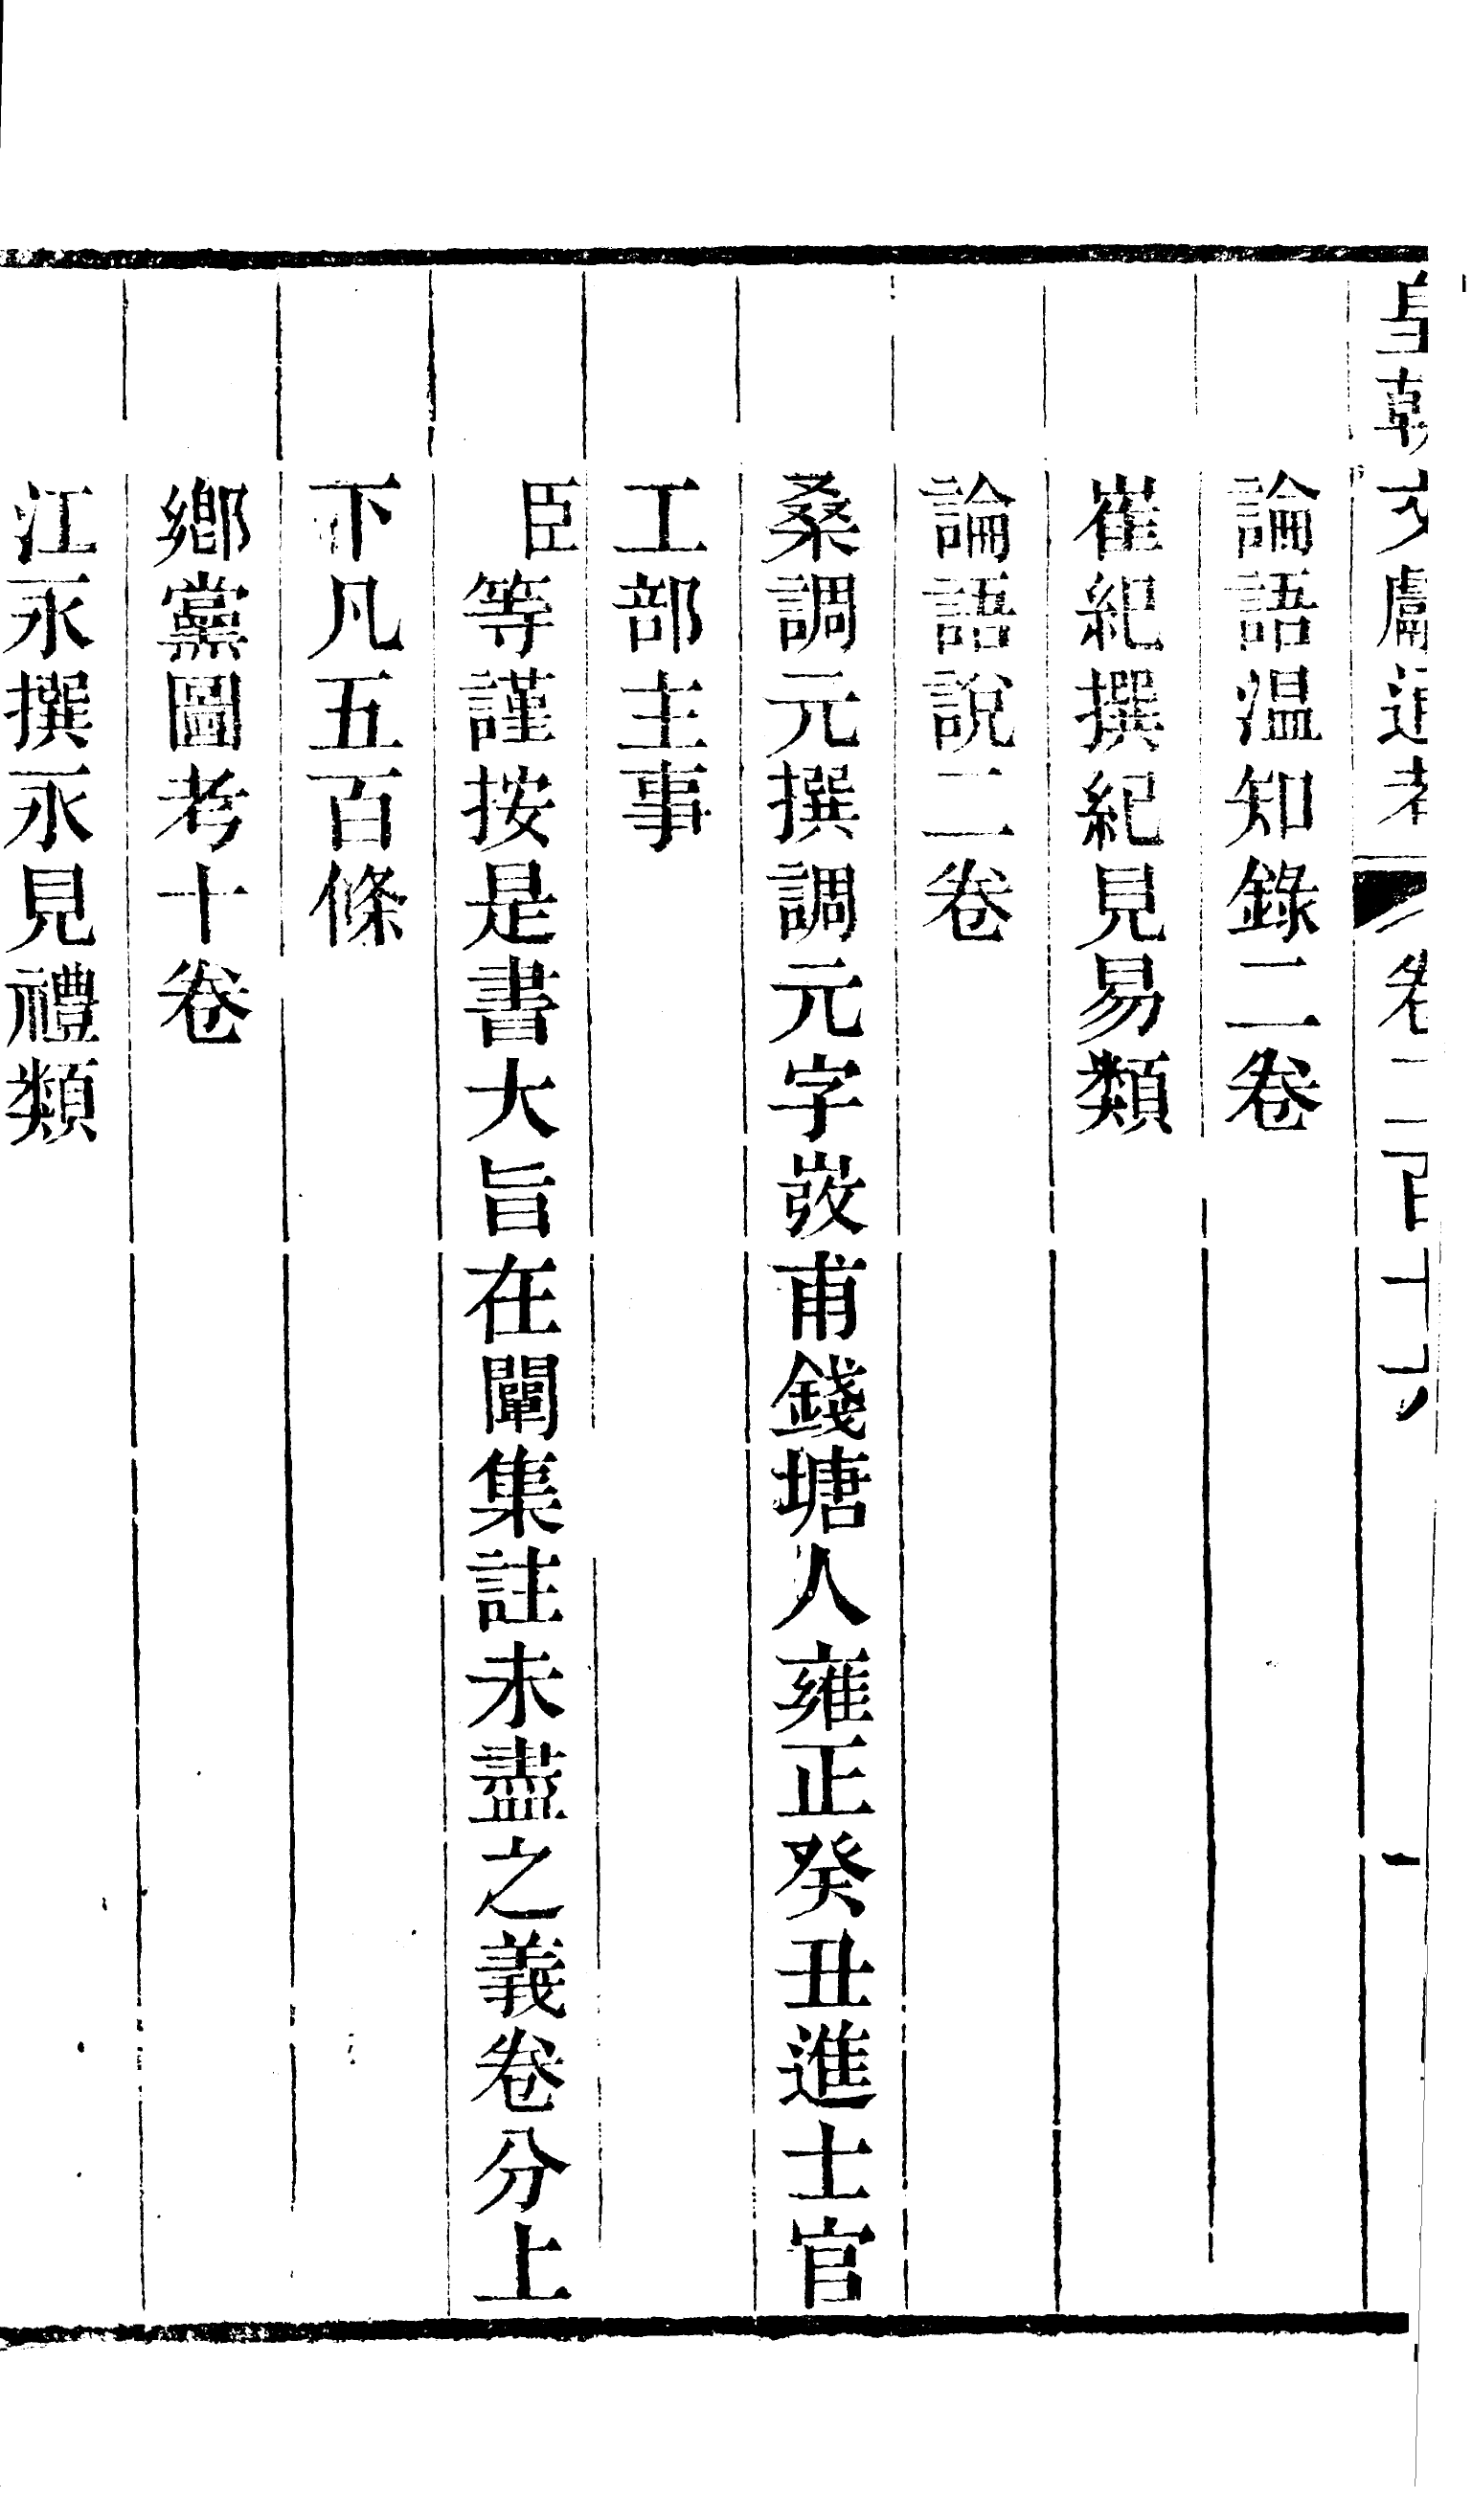 皇朝文獻通考 卷二百十六 一
論語温知錄二卷
崔紀撰紀見易類
論語說二卷
桑調元撰調元字弢甫錢塘人雍正癸丑進士官
工部主事
臣等謹按是書大旨在闡集註未盡之義卷分上
下凡五百條
鄉黨圖考十卷
江永撰永見禮類